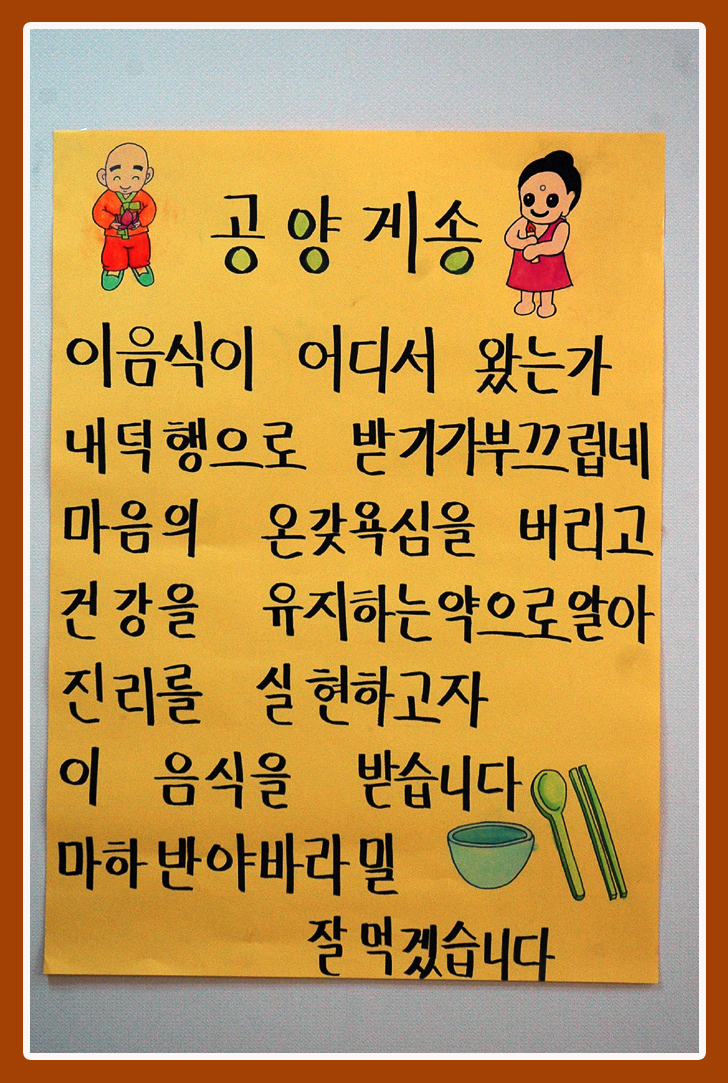 공양게송
이음식이 어디서 왔는가
내덕행으로 받기가부끄럽네
마음의 온갖욕심을 버리고
건강을 유지하는약으로알아
진리를 실현하고자
이 음식을 받습니다
마하반야바라밀
잘먹겠습니다